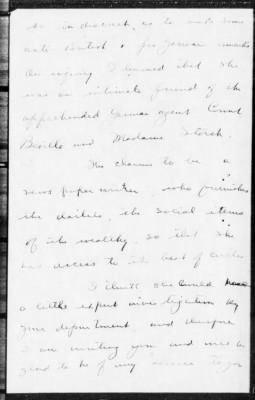 so indiscreet, as to make some
anti British & pro German remarks
On inquiry I learned that she
was an intimate friend of the
apprehended German agent Count
Beville and Madame Storch.
She claims to be a
news paper writer who furnishes
the dailies, the social items
of the wealthy, so that she
has access to the best of circles
I think she could have
a little expert investigation by
your department and
I am writing you and will be
glad to be of any service to you